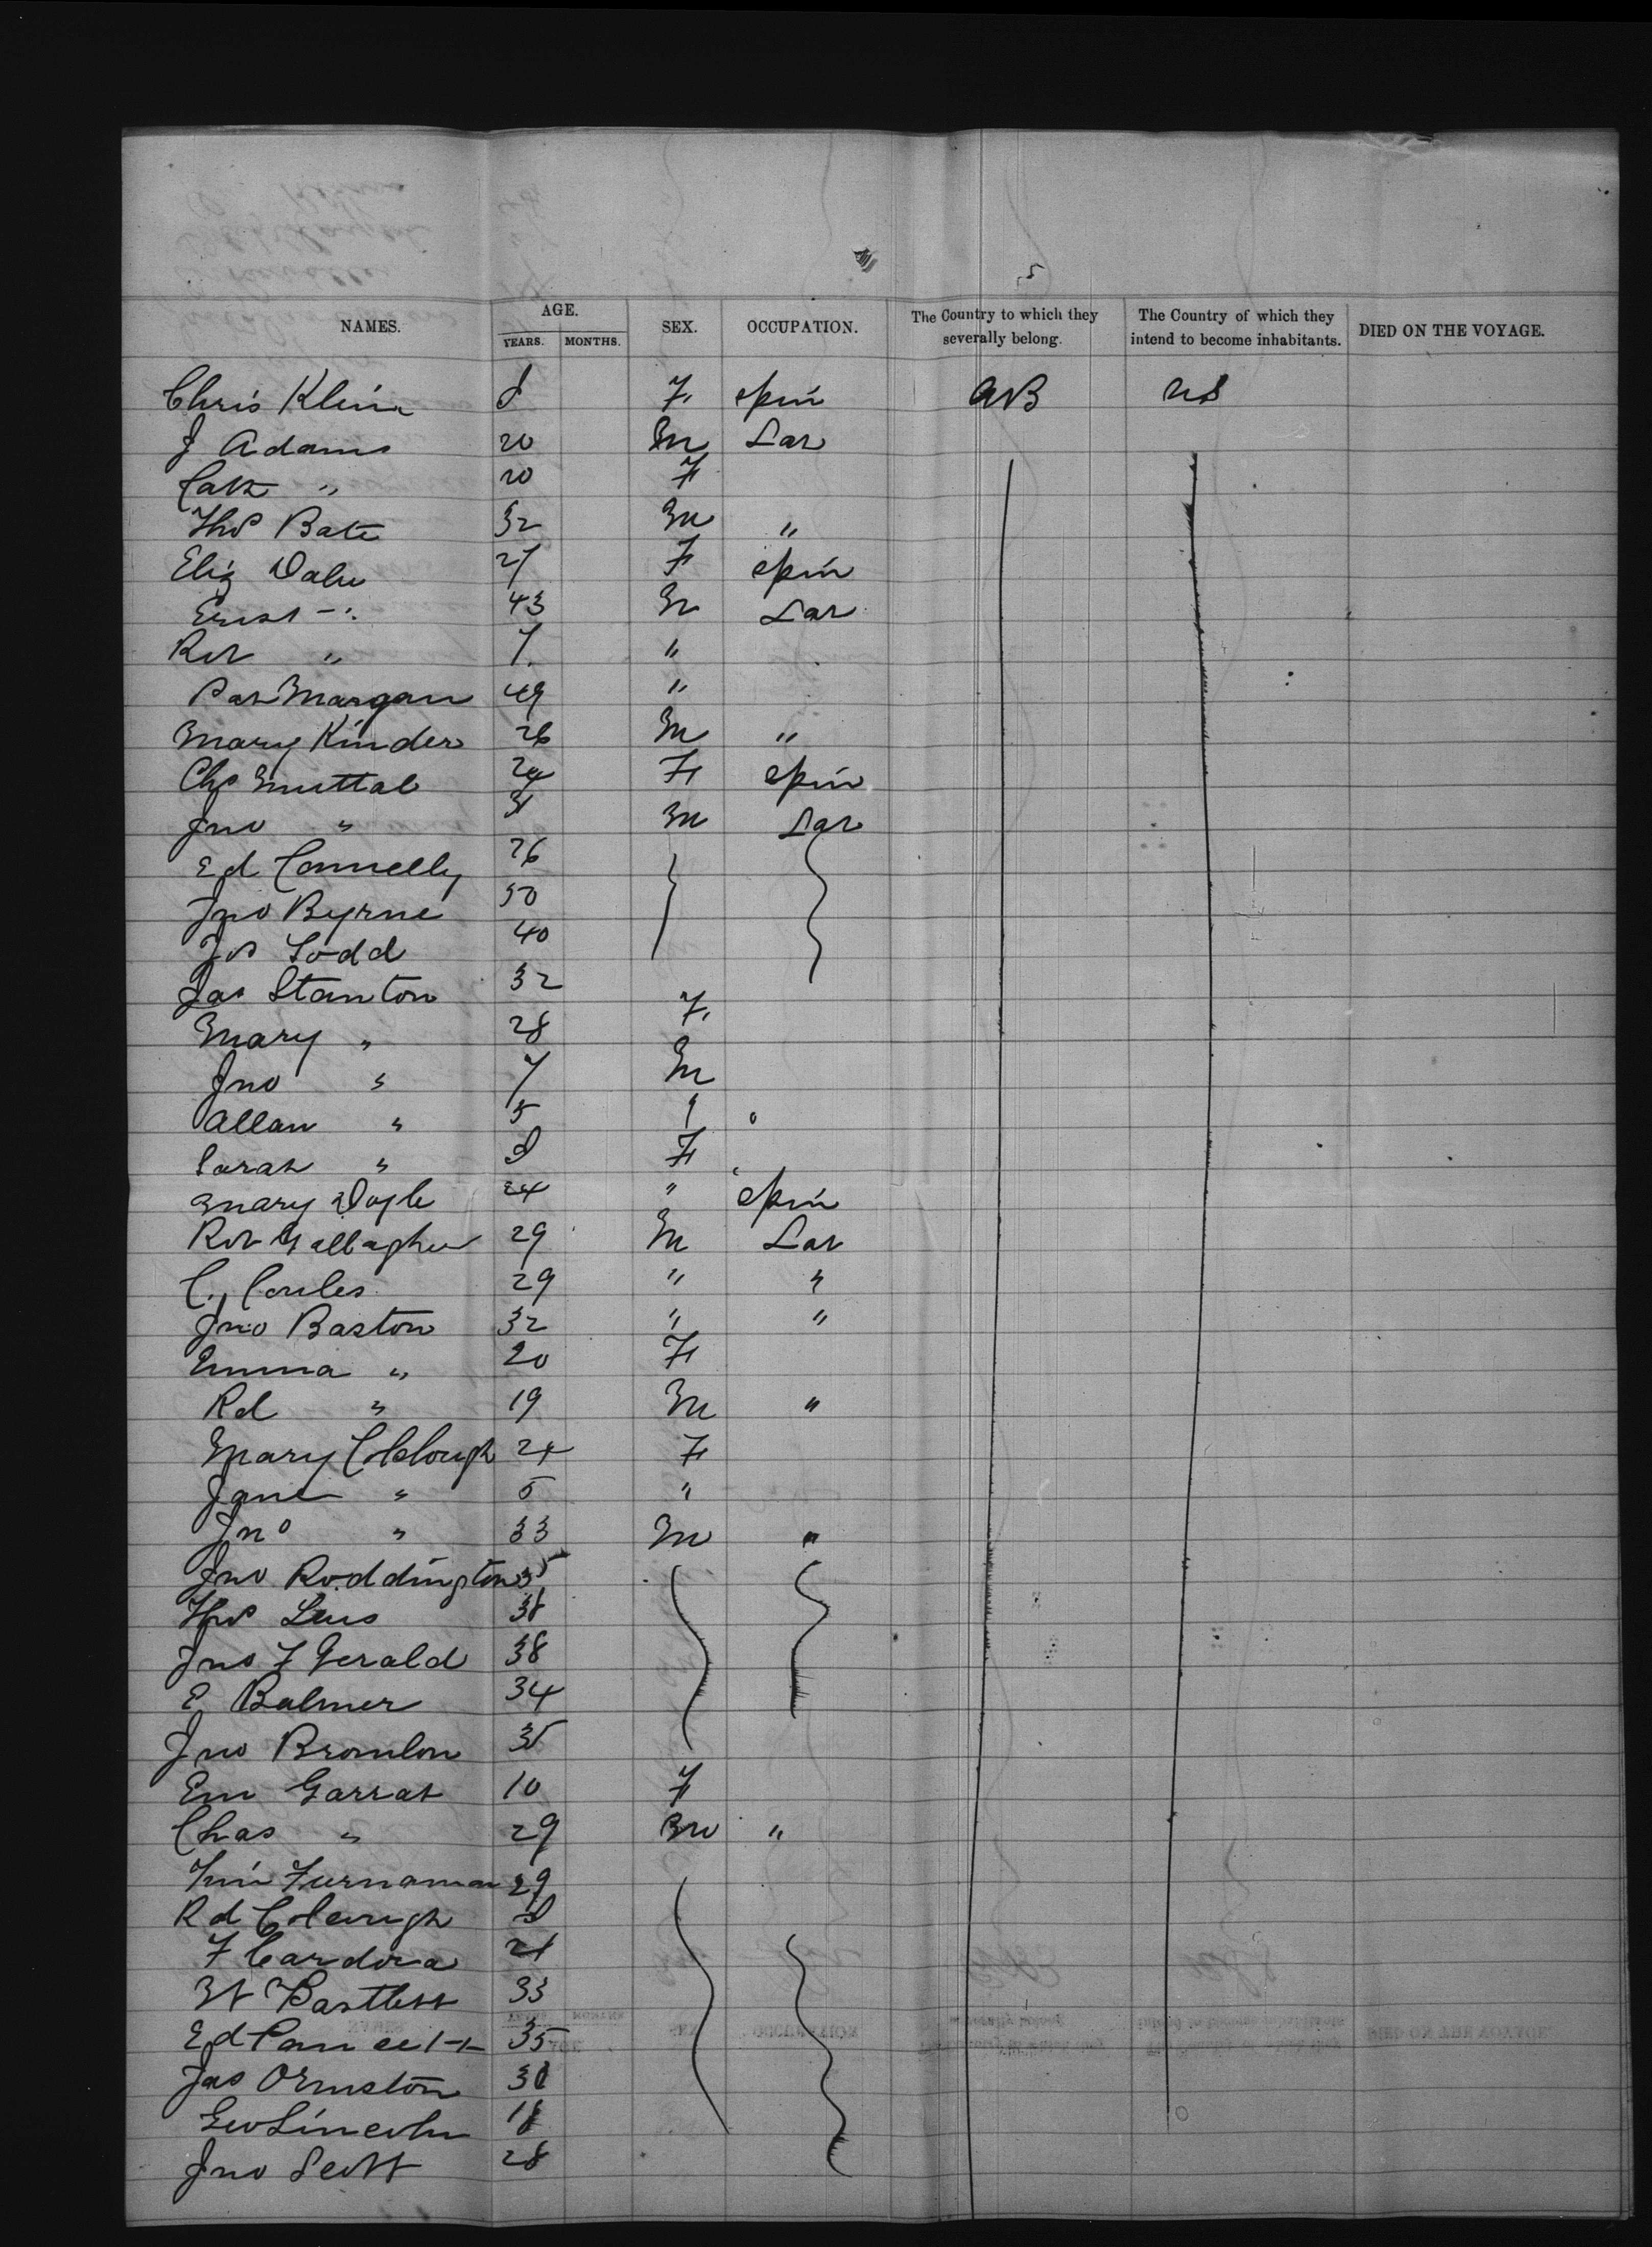 5
NAMES. AGE. SEX. OCCUPATION. The Country to which they severally belong. The Country of which they intend to become inhabitants. DIED ON THE VOYAGE.
YEARS. MONTHS.
Chris Klein F spin GB US
J Adams 20 M Lar
Cath " 20 F
Thos Bate 32 M "
Eliz Daly 27 F spin
Ernst " 43 M Lar
Rob " 7 "
Pat Morgan 49 "
Mary Kinder 26 M "
Chs Nuttal 24 F spin
Jno " 31 M Lar
Ed Connelly 26
Jno Byrne 50
Jos Todd 40
Jas Stanton 32
Mary " 28 F
Jno " 7 M
Allan " 5
Sarah " F
Mary Doyle 24 " spin
Rob Gallagher 29 M Lar
C. 29 " "
Jno Baston 32 " "
Emma " 20 F
Rd " 19 M "
Mary Colclough 24 F
Jane " 5 "
Jno " 33 M "
Jno Roddington 35
Thos 38
Jno F Gerald 38
E Balmer 34
Jno 35
Em Garrat 10 F
Chas " 29 M "
29
Rd
F 21
W Bartlett 33
Ed 35
Jas Ormston 30
Geo Lincoln 18
Jno Scott 28